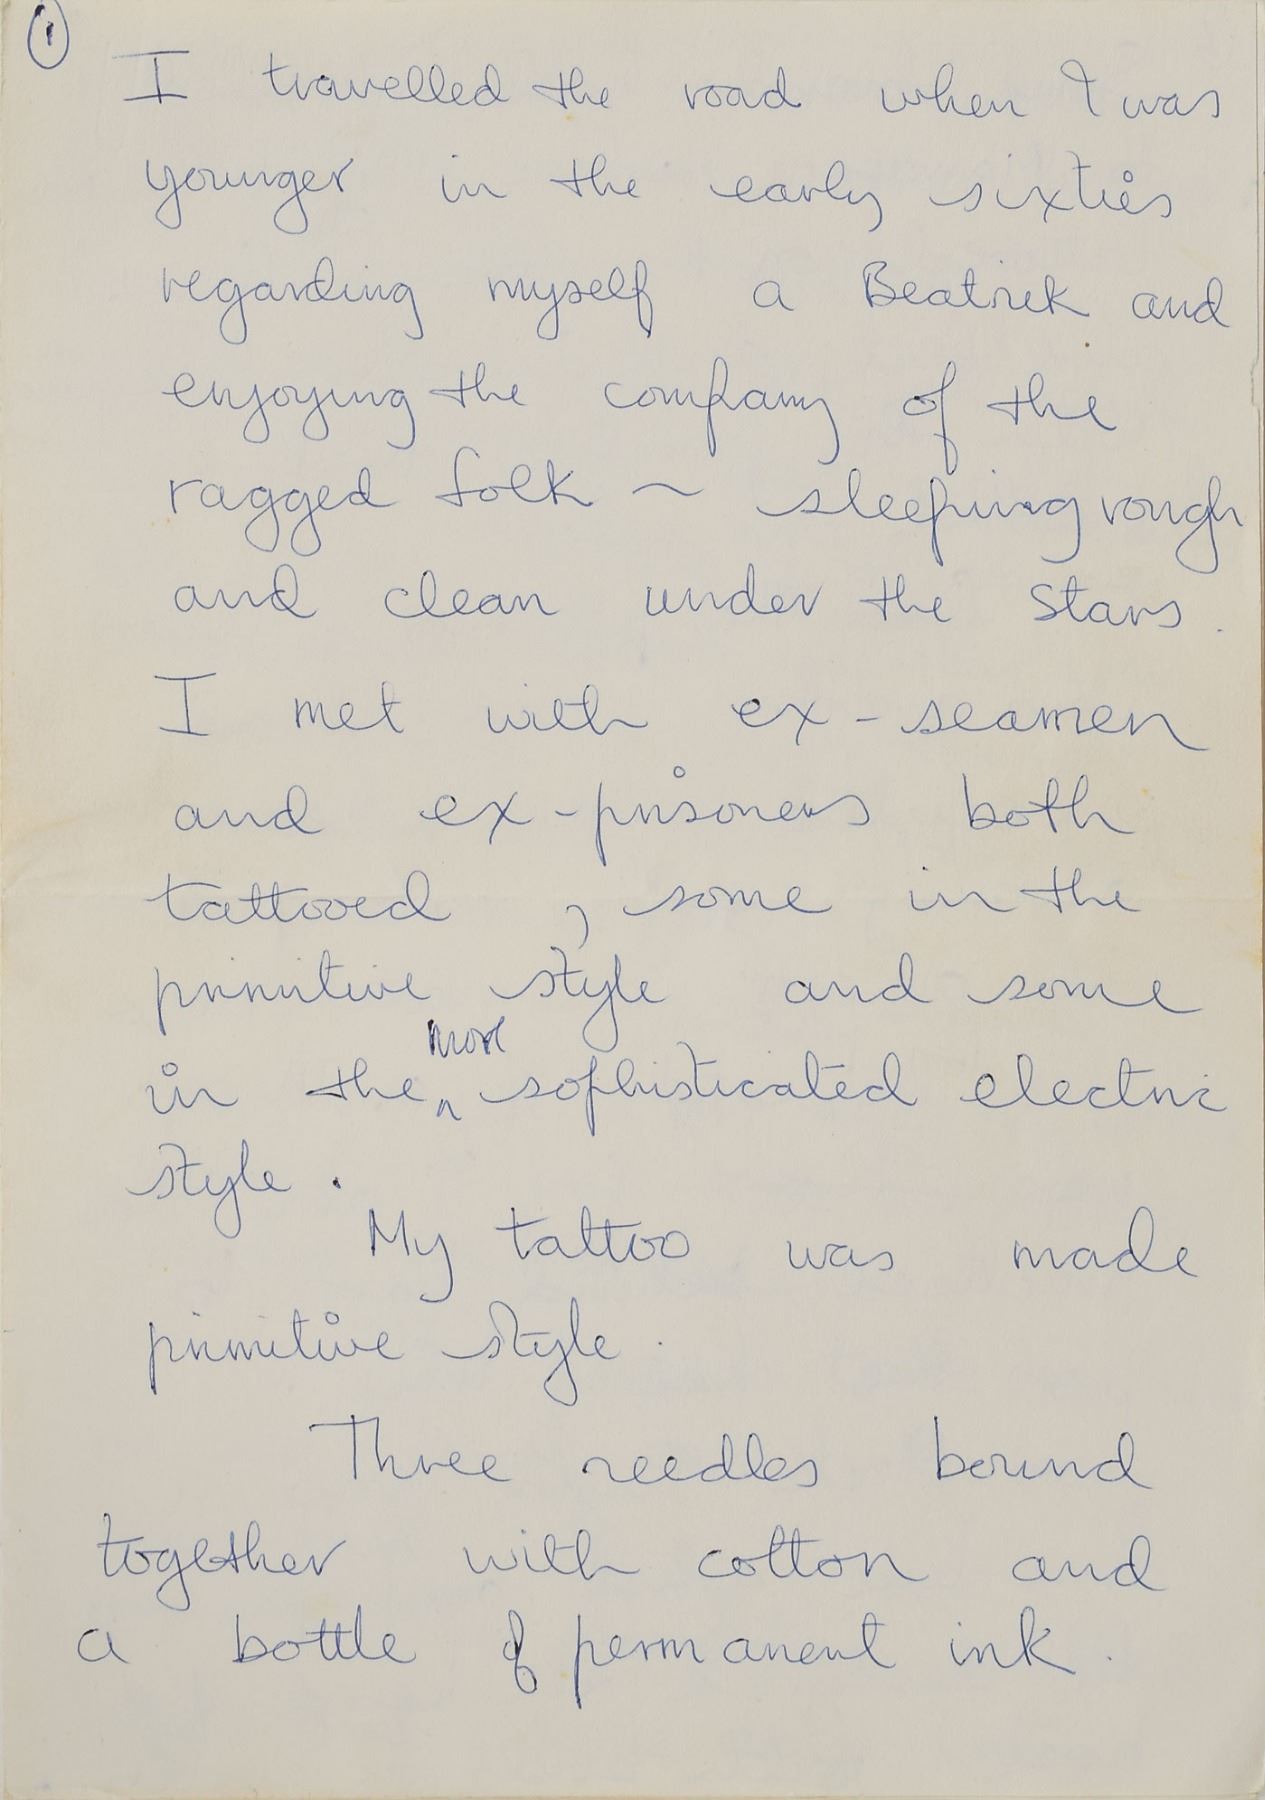 1
I travelled the road when I was
younger in the early sixties
regarding myself a Beatnik and
enjoying the company of the
ragged folk ~ sleeping rough
and clean under the stars.
I met with ex-seamen
and ex-prisoners both
tattooed, some in the
primitive style and some
more
in the sophisticated electric
style.
My tattoo was made
primitive style.
Three needles bound
together with cotton and
a bottle of permanent ink.